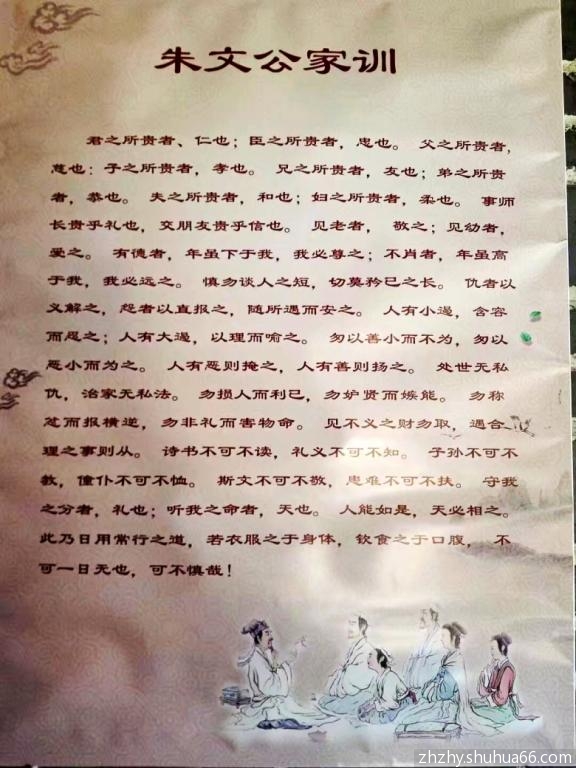 朱文公家训
君之所贵者、仁也；臣之所贵者，忠也。 父之所贵者，
慈也；子之所贵者，孝也。 兄之所贵者，友也；弟之所贵
者，恭也。 夫之所贵者，和也；妇之所贵者，柔也。 事师
长贵乎礼也，交朋友贵乎信也。 见老者， 敬之；见幼者，
爱之。 有德者，年虽下于我，我必尊之；不肖者，年虽高
于我，我必远之。 慎勿谈人之短，切莫矜已之长。 仇者以
义解之，怨者以直报之，随所遇而安之。 人有小过，含容
而忍之；人有大过，以理而喻之。 勿以善小而不为，勿以
恶小而为之。 人有恶则掩之，人有善则扬之。 处世无私
仇，治家无私法。 勿损人而利已，勿妒贤而嫉能。 勿称
忿而报横逆，勿非礼而害物命。 见不义之财勿取，遇合
理之事则从。 诗书不可不读，礼义不可不知。 子孙不可不
教，僮仆不可不恤。 斯文不可不敬，患难不可不扶。 守我
之分者，礼也；听我之命者，天也。 人能如是，天必相之。
此乃日用常行之道，若衣服之于身体，饮食之于口腹， 不
可一日无也，可不慎哉！
zhzhy.shuhua66.com